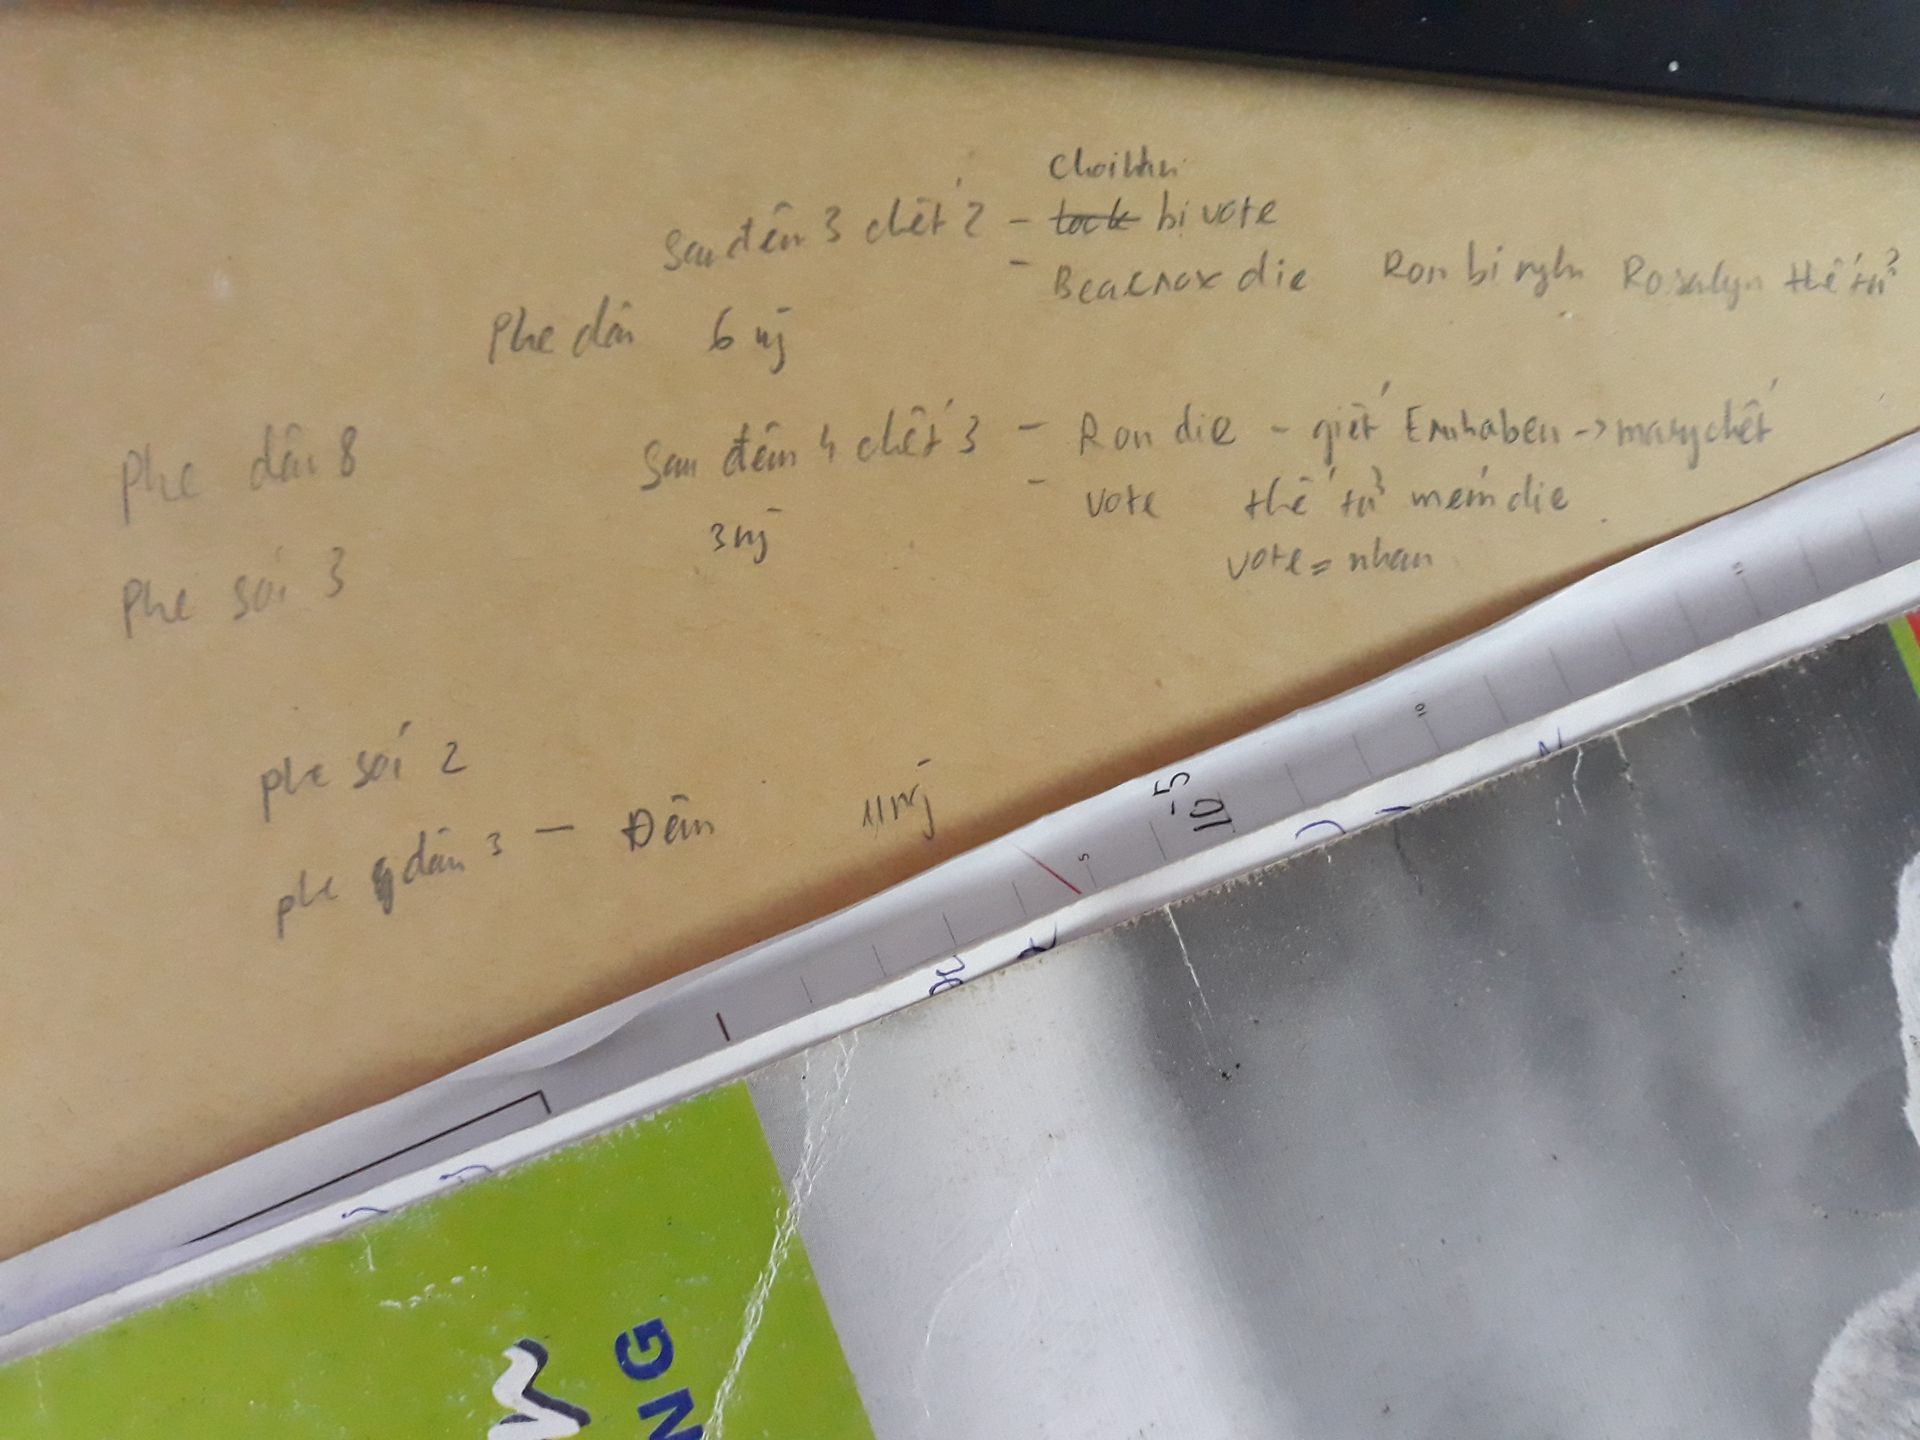 Sau đêm 3 chết 2 - bị vote
- Beacnox die Ron bị Rosalyn thế tử
Phe dân 6 ng
Phe dân 8
Sau đêm 4 chết 3 - Ron die - giết Emhaben -> mary chết
- vote thế tử mém die
3 ng
vote = nhau
Phe sói 3
phe sói 2
phe dân 3 - Đêm 11 ng
-5
10
5
10
15
NG